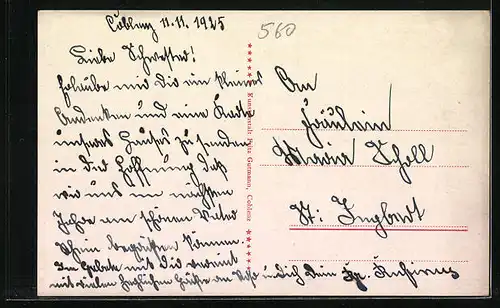 Coblenz 11.11.1925
560
Liebe Schwester!
erlaube mir Dir ein kleines
Andenken und eine Karte
unseres Hauses zu senden
in der Hoffnung daß
wir uns im nächsten
Jahre am schönen Vater
Rhein begrüßen können.
Im Gebete mit Dir vereint
mit vielen herzlichen Grüße an
Kunstanstalt Fritz Gutmann, Coblenz
An
Fräulein
Maria Scholl
St. Ingbert